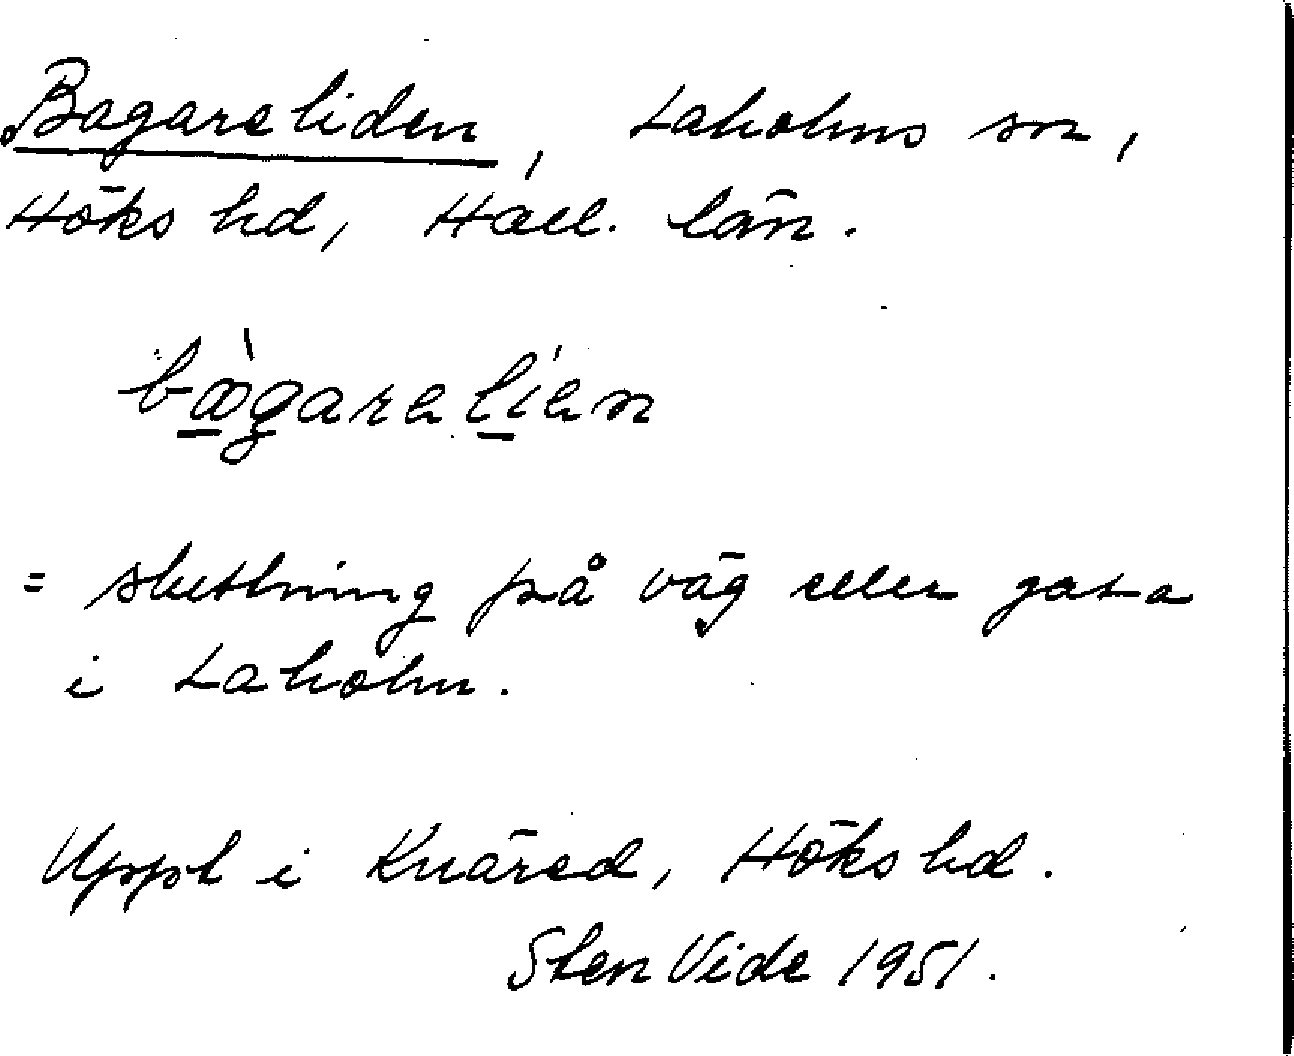 Bagareliden, Laholms sn,
Höks hd, Hall. län.
bàgarelíen
= sluttning på väg eller gata
i Laholm.
Uppt i Knäred, Höks hd.
Sten Vide 1951.